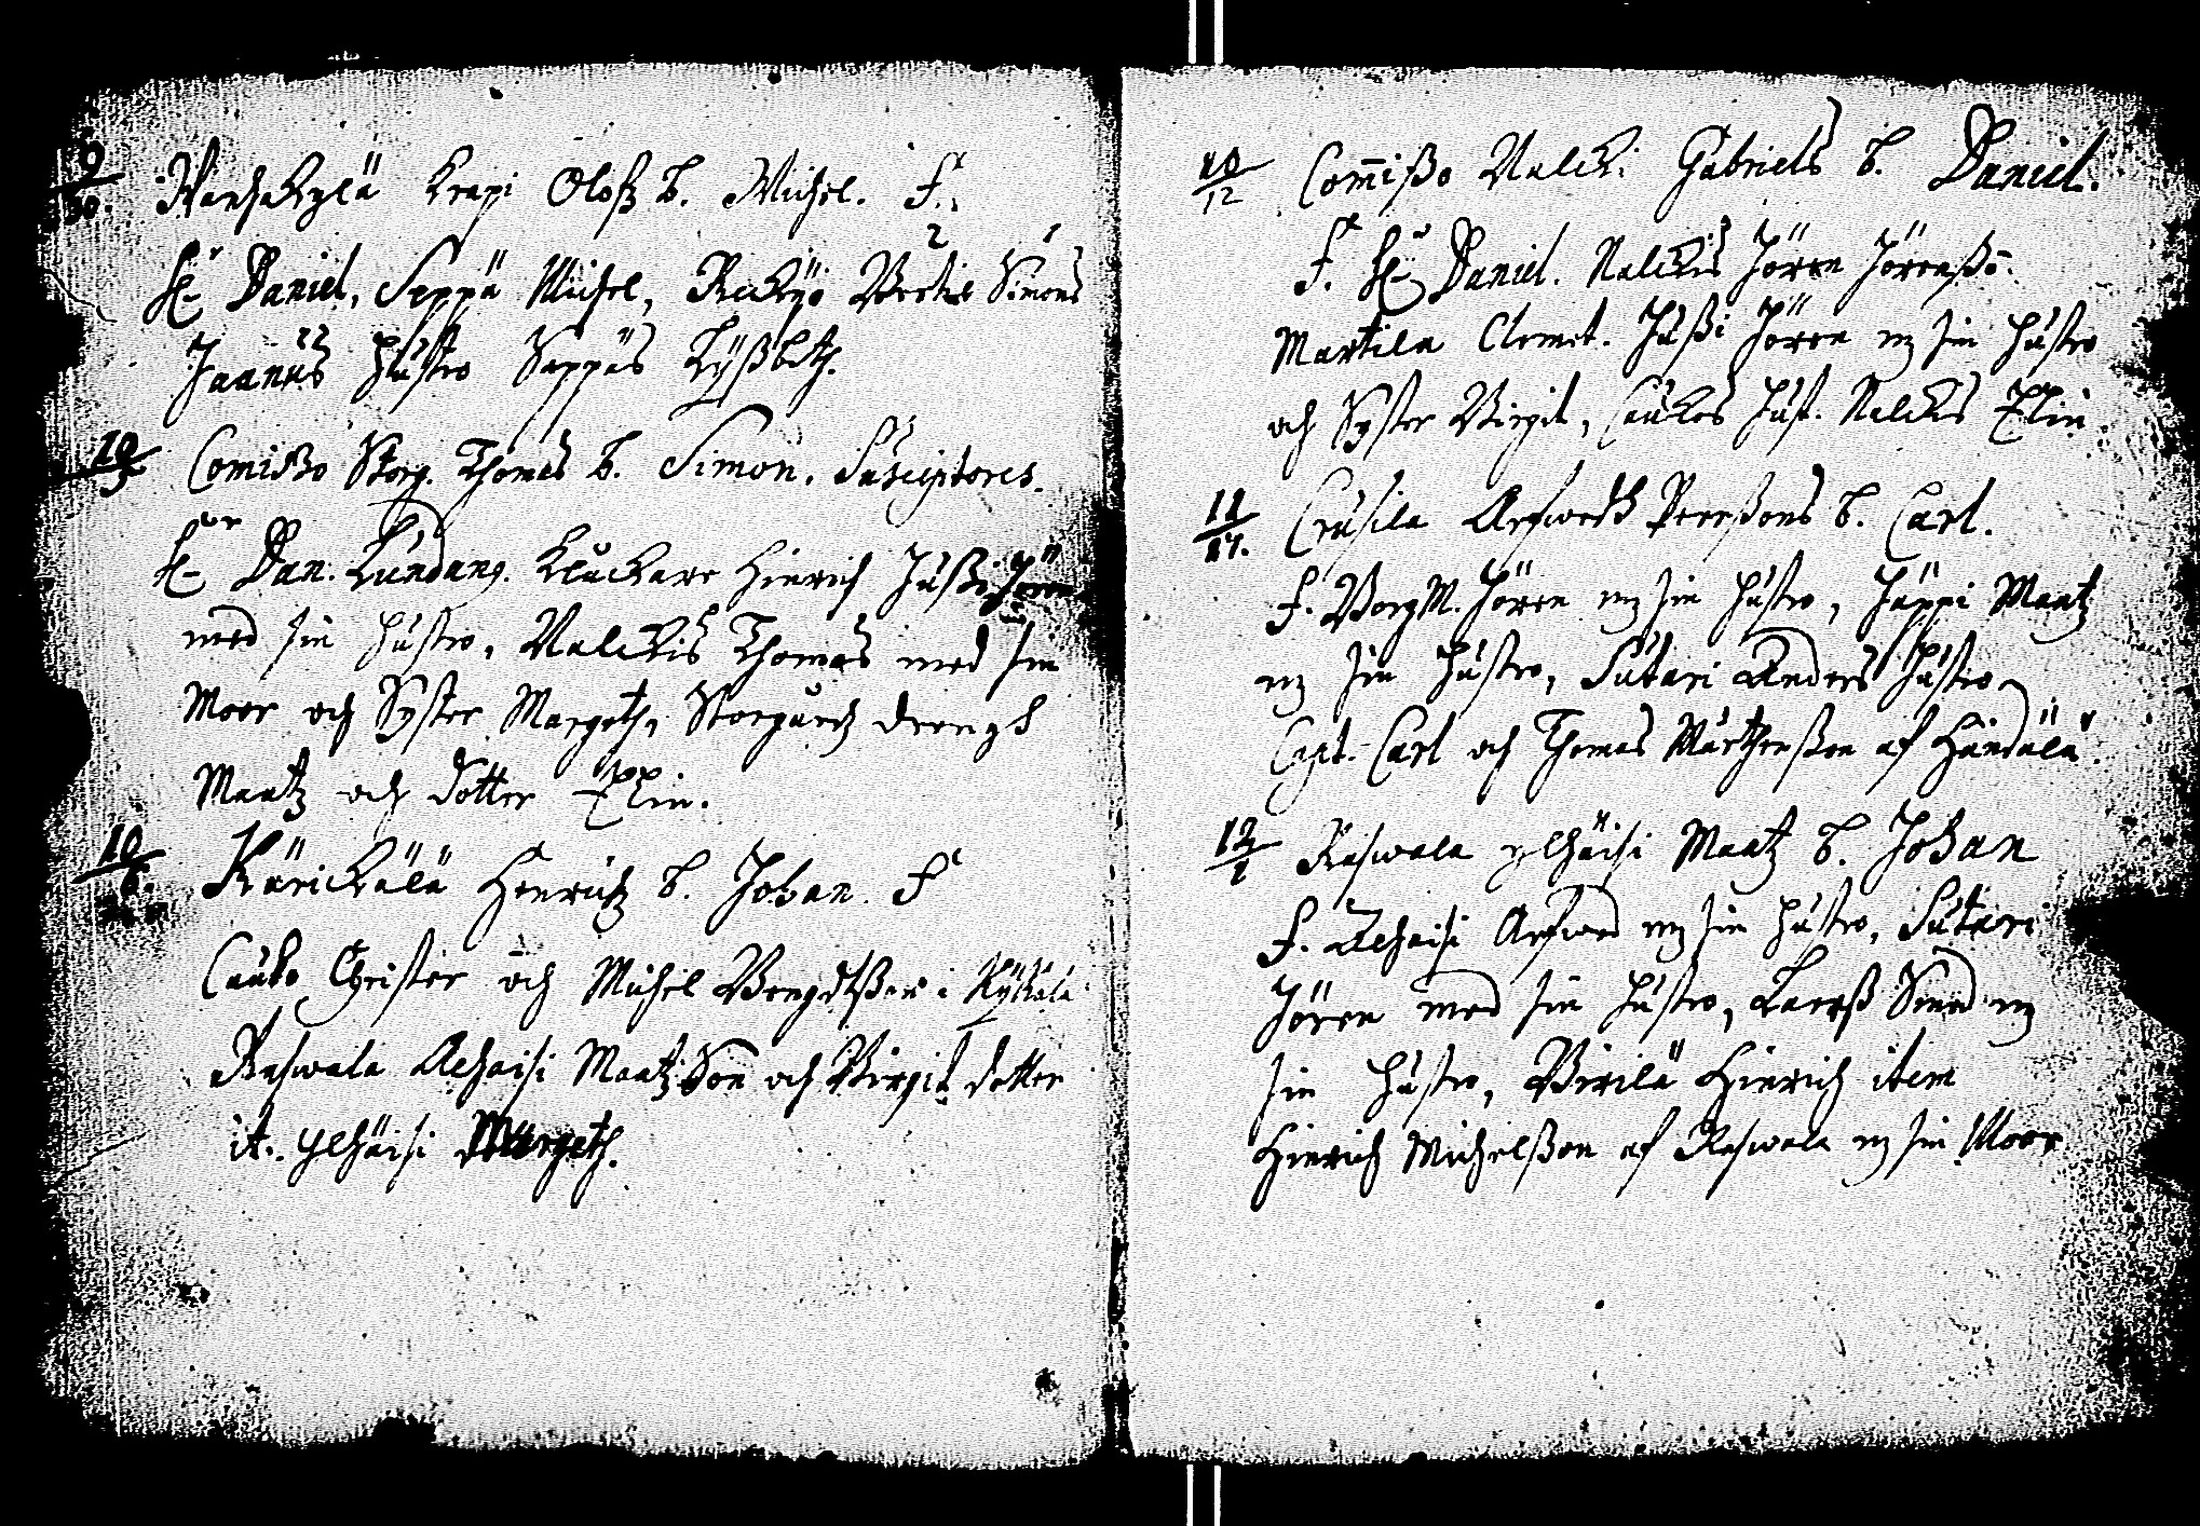 9/30. Wanhakylä Krapi Olofz b. Michel. F.
H:r Daniel, Seppä Michel, Reckijö Bertils Simons
Jaanus Hustro Seppäs Lijßbeth.
10/5 Comißo Storg. Thomas b. Simon. Susceptores.
H:r Dan. Lundang. Kluckare Hinrich Jußi Jören
med sin hustro, Nalckis Thomas med sin
Moor och Syster Margeth, Storgurdz drengh
Maatz och dotter Elin.
10/6. Kärickälä Henrichz b. Johan. F
Cauko Christer och Michel Bengdtßon i Kÿlkälä
Raswala Alhaisi Maatz Son och Birgit dotter
it. Ylhäisi Margeth.
10/12 Com̄ißo Nalcki Gabriels b. Daniel.
F. H:r Daniel. Nalckis Jören Jörenßo.
Martila Clemet. Jußi Jören m sin hustro
och Syster Birgit, Caukos hust. Nalckis Elin.
11/17. Crusila Arfwedh Peerßons b. Carl.
F. BorgM. Jören m sin hustro, Jäppi Maatz
m sin hustro, Sutari Anders hustro
Capt. Carl och Thomas Mårthenßon af Händälä.
12/1 Raswala ylhäisi Maatz b. Johan
F. Alhaisi Arfwed m sin hustro, Sutari
Jören med sin hustro, Larß Smed m
sin hustro, Birilä Hinrich item
Hinrich Michelßon af Raswala m sin Moor